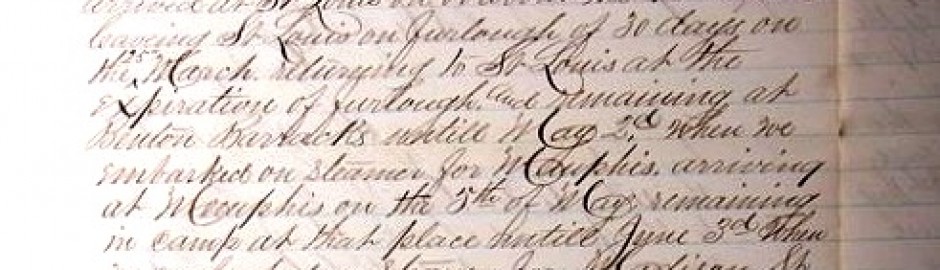 arrived at St Louis on
leaving St. Louis on furlough of 30 days on
the 25 March. returning to St Louis at the
expiration of furlough. and remaining at
Benton Barracks untill May 2d. when we
embarked on steamer for Memphis. arriving
at Memphis on the 5th of May remaining
in camp at that place untill June 3d When